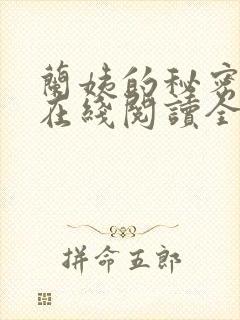 蘭姨的秘密
在綫閱讀全
拼命五郎